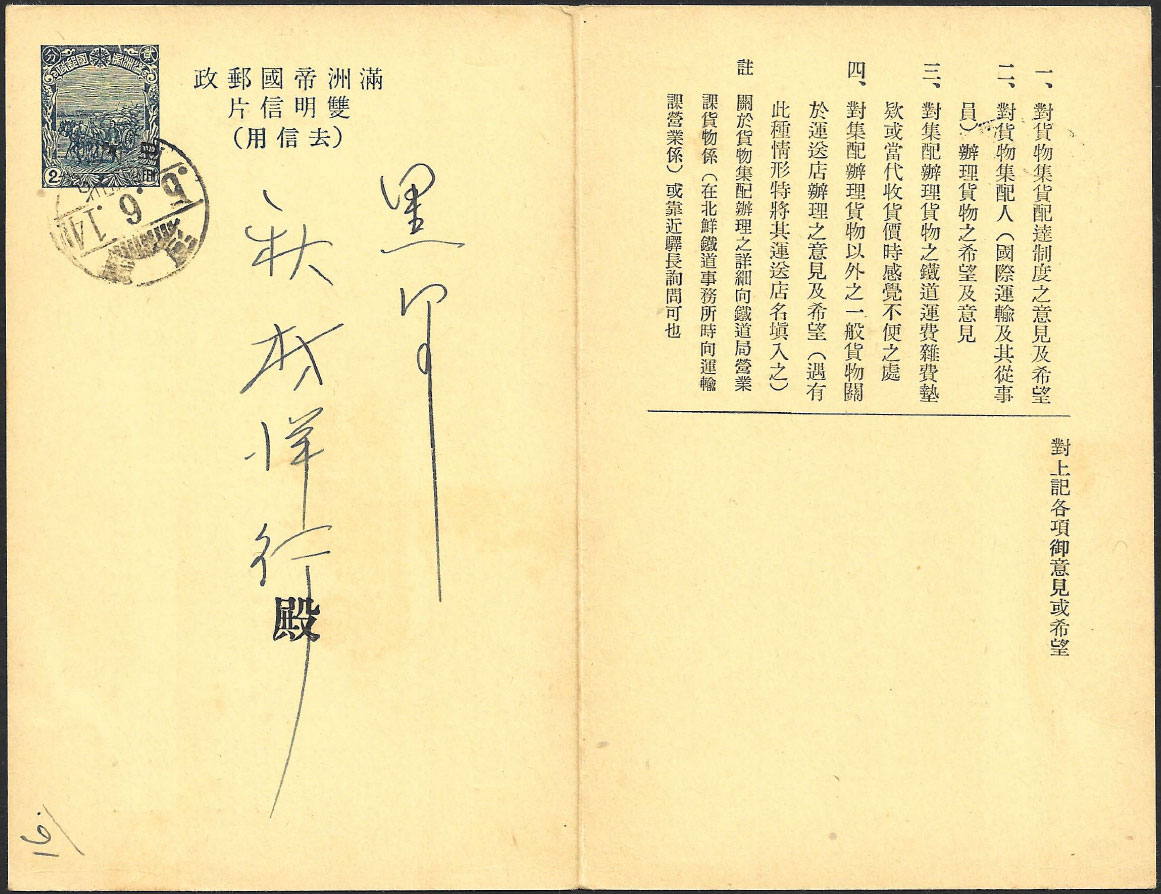 滿洲帝國郵政
雙明信片
(去信用)
貳分
2
5.6.14
黑
秋林洋行
殿
一、對貨物集貨配達制度之意見及希望
二、對貨物集配人（國際運輸及其從事
員）辦理貨物之希望及意見
三、對集配辦理貨物之鐵道運費雜費墊
欵或當代收貨價時感覺不便之處
四、對集配辦理貨物以外之一般貨物關
於運送店辦理之意見及希望（遇有
此種情形特將其運送店名塡入之）
註 關於貨物集配辦理之詳細向鐵道局營業
課貨物係（在北鮮鐵道事務所時向運輸
課營業係）或靠近驛長詢問可也
對上記各項御意見或希望